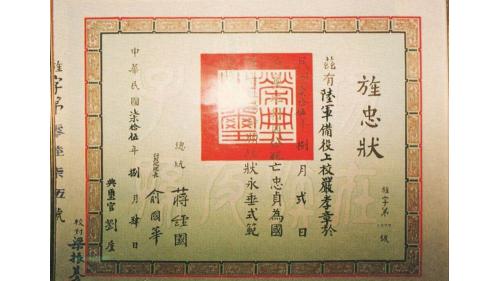 旌忠狀
旌字第
號
茲有陸軍備役上校嚴孝章於
拾伍年捌月弍日
亡忠貞為國
狀永垂式範
榮典之璽
總統 蔣經國
行政院院長 俞國華
中華民國柒拾伍年捌月肆日
典璽官 劉垕
校對 梁振